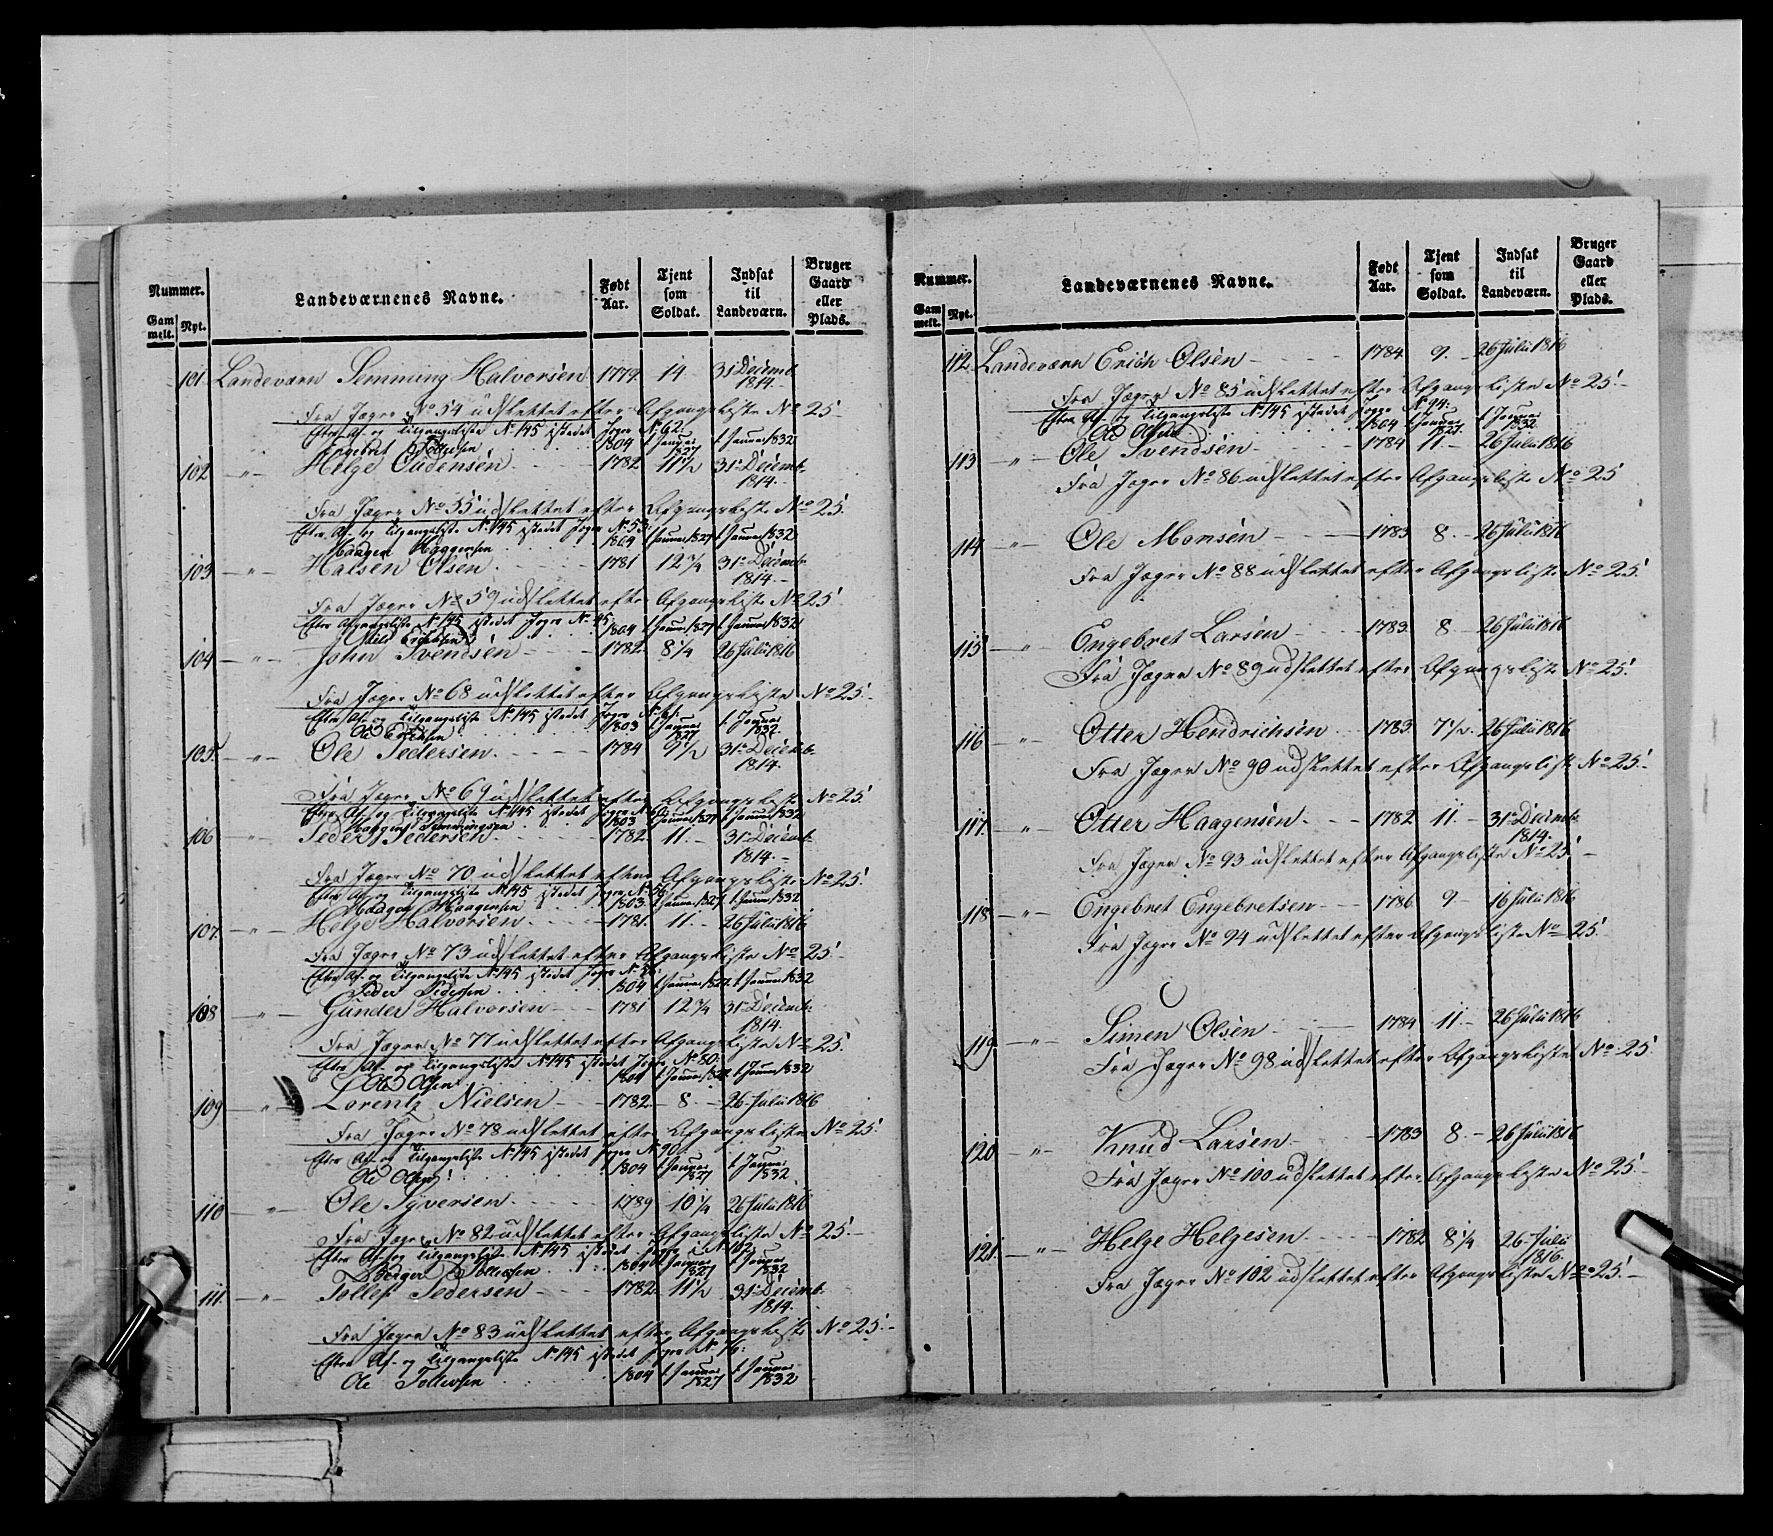 Nummer.
Gam
melt.
Nyt.
Landeværnenes Navne.
Født
Aar.
Tjent
som
Soldat.
Indsat
til
Landeværn.
Bruger
Gaard
eller
Plads.
101 Landeværn Semming Halvorsen 1779. 14 31 Decemb.
1814.
Fra Jæger No 54 udslettet efter Afgangsliste No 25.
Efter Af- og Tilgangsliste No 145 istedet Jæger No 62:
Engebret Tollefsen 1804 1 Januar 1827 1 Januar 1832
102 -"- Helge Gudensen 1782 11 1/2 31 Decemb.
1814.
Fra Jæger No 55 udslettet efter Afgangsliste No 25.
Efter Af- og Tilgangsliste No 145 istedet Jæger No 53:
Haagen Haagensen 1804 1 Januar 1827 1 Januar 1832
103 -"- Halsen Olsen 1781 12 3/4 31 Decemb.
1814.
Fra Jæger No 59 udslettet efter Afgangsliste No 25
Efter Afgangsliste No 145 istedet Jæger No 45
Niels Erichsen 1804 1 Januar 1827 1 Januar 1832
104 -"- John Svendsen 1782 8 1/4 26 Julii 1816
Fra Jæger No 68 udslettet efter Afgangsliste No 25.
Efter Af- og Tilgangsliste No 145 istedet Jæger No 61:
Ole Erichsen 1803 1 Januar 1827 1 Januar 1832
105. -"- Ole Pedersen 1784 9 1/2 31 Decemb.
1814.
Fra Jæger No 69 udslettet efter Afgangsliste No 25.
Efter Af- og Tilgangsliste No 145 istedet Jæger
Haagen Semmingsen 1803 1 Januar 1827 1 Januar 1832
106 -"- Peder Pedersen 1782 11. 31 Decemb.
1814.
Fra Jæger No 70 udslettet efter Afgangsliste No 25.
Efter Af- og Tilgangsliste No 145 istedet Jæger No 56
Haagen Haagensen 1803 1 Januar 1827 1 Januar 1832
107. -"- Helge Halvorsen 1781. 11. 26 Julii 1816
Fra Jæger No 73 udslettet efter Afgangsliste No 25.
Efter Af- og Tilgangsliste No 145 istedet Jæger
Peder Pedersen 1804 1 Januar 1827 1 Januar 1832
108 -"- Gunder Halvorsen 1781 12 3/4 31 Decemb.
1814.
Fra Jæger No 77 udslettet efter Afgangsliste No 25.
Efter Af- og Tilgangsliste No 145 istedet Jæger No 80:
Ole Olsen 1804 1 Januar 1827 1 Januar 1832
109 -"- Lorentz Nielsen 1782 8 26 Julii 1816
Fra Jæger No 78 udslettet efter Afgangsliste No 25.
Efter Af- og Tilgangsliste No 145 istedet Jæger No 90
Ole Olsen 1804 1 Januar 1827 1 Januar 1832.
110 -"- Ole Syversen 1789 10 1/4 26 Julii 1816
Fra Jæger No 82 udslettet efter Afgangsliste No 25.
Efter Af- og Tilgangsliste No 145 istedet Jæger No 102
Berger Tollefsen 1804 1 Januar 1827 1 Januar 1832
111. -"- Tollef Pedersen 1782 11 1/2 31 Decemb.
1814.
Fra Jæger No 83 udslettet efter Afgangsliste No 25.
Efter Af- og Tilgangsliste No 145 istedet Jæger No 76:
Ole Tollefsen 1804 1 Januar 1827 1 Januar 1832
Nummer.
Gam
melt.
Nyt.
Landeværnenes Navne.
Født
Aar.
Tjent
som
Soldat.
Indsat
til
Landeværn.
Bruger
Gaard
eller
Plads.
112. Landeværn Erich Olsen 1784 9. 26 Julii 1816
Fra Jæger No 85 udslettet efter Afgangsliste No 25.
Efter Af- og Tilgangsliste No 145 istedet Jæger No 94:
Ole Olsen 1804 1 Januar 1827 1 Januar 1832
113 -"- Ole Svendsen 1784 11. 26 Julii 1816
Fra Jæger No 86 udslettet efter Afgangsliste No 25
114 -"- Ole Monsen 1783 8. 26 Julii 1816
Fra Jæger No 88 udslettet efter Afgangsliste No 25.
115 -"- Engebret Larsen 1783. 8 26 Julii 1816
Fra Jæger No 89 udslettet efter Afgangsliste No 25.
116 -"- Otter Hendrichsen 1783. 7 1/2. 26 Julii 1816
Fra Jæger No 90 udslettet efter Afgangsliste No 25.
117. -"- Otter Haagensen 1782 11. 31 Decemb.
1814.
Fra Jæger No 93 udslettet efter Afgangsliste No 25.
118 -"- Engebret Engebretsen 1786 9 16 Julii 1816
Fra Jæger No 94 udslettet efter Afgangsliste No 25.
119 -"- Simen Olsen 1784 11. 26 Julii 1816
Fra Jæger No 98 udslettet efter Afgangsliste No 25.
120 -"- Knud Larsen 1783 8. 26 Julii 1816
Fra Jæger No 100 udslettet efter Afgangsliste No 25.
121. -"- Helge Helgesen 1782 8 1/4 26 Julii
1816.
Fra Jæger No 102 udslettet efter Afgangsliste No 25.